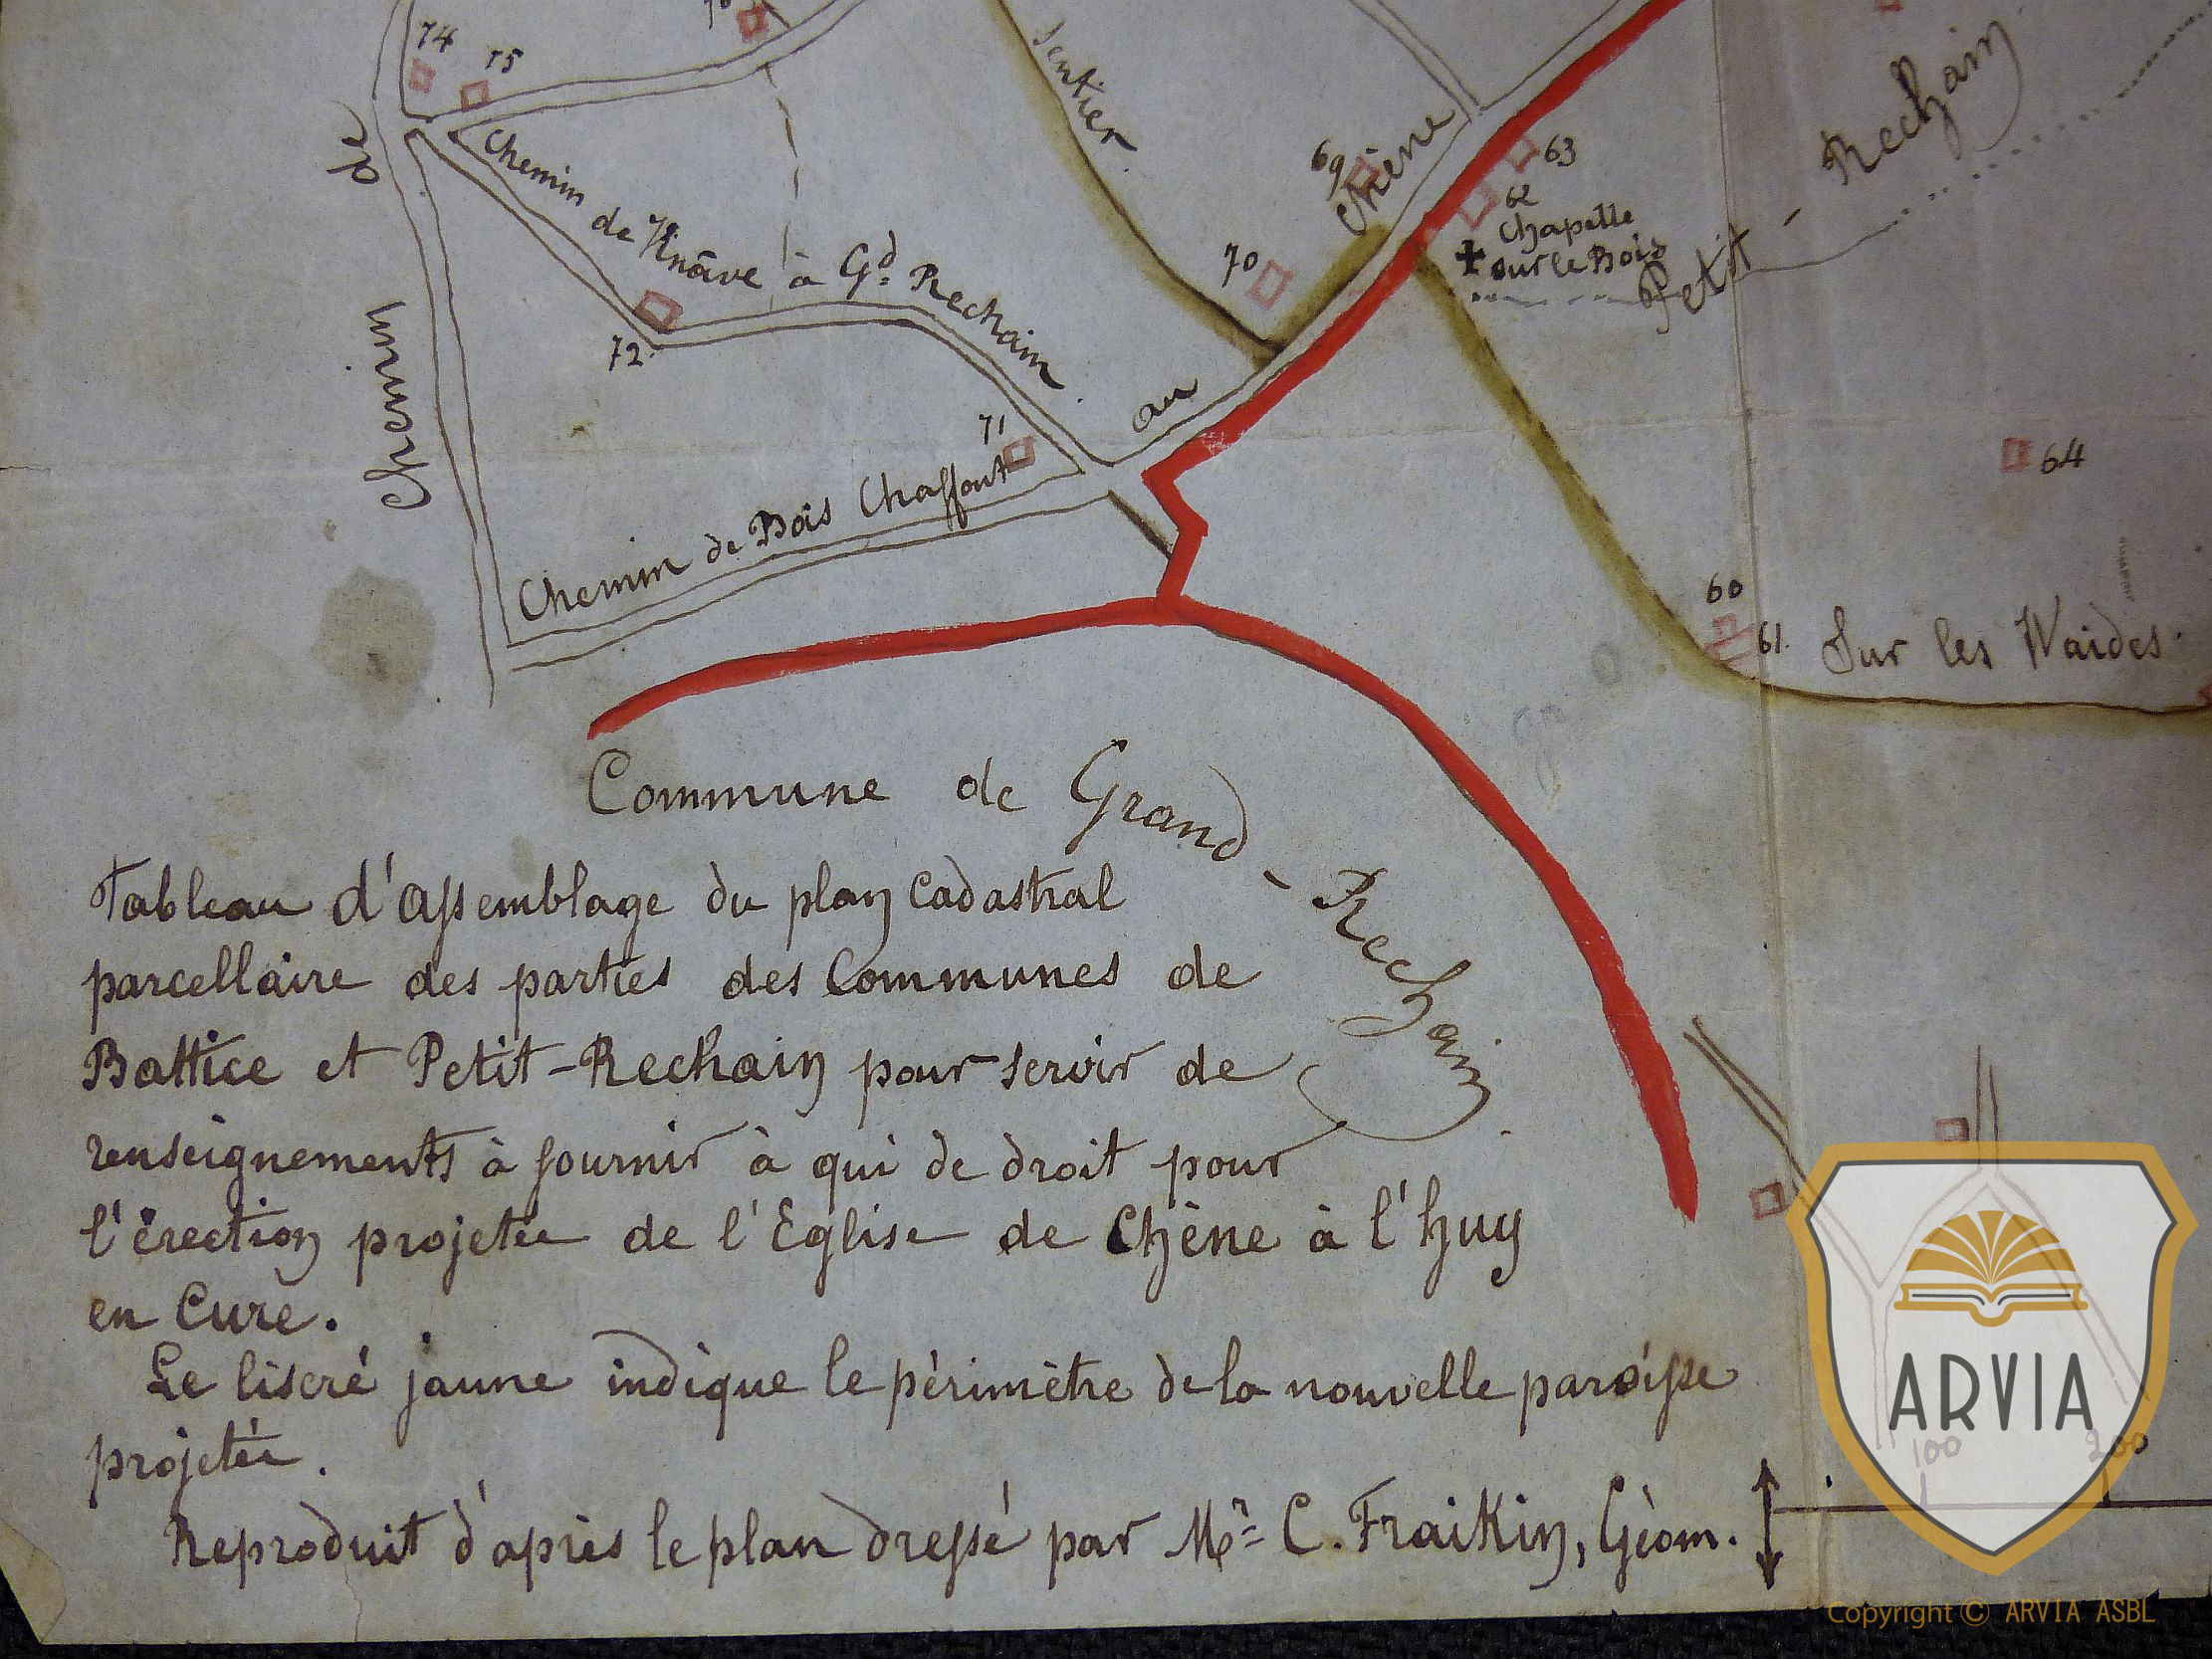 74
75
de
Sentier
69
63
Chêne
62
Chapelle
sur le Bois
Petit - Rechain
70
Chemin de Xhâve à Gd. Rechain
72.
Chemin
au
71
Chemin de Bois Chaffout
64
60
61.
Sur les Waides.
Commune de Grand - Rechain
Tableau d'assemblage du plan cadastral
parcellaire des parties des Communes de
Battice et Petit-Rechain pour servir de
renseignements à fournir à qui de droit pour
l'érection projetée de l'Eglise de Chêne à l'huy
en Cure.
Le liseré jaune indique le périmètre de la nouvelle paroisse
projetée.
Reproduit d'après le plan dressé par Mr. C. Fraikin, Géom.
100
200
ARVIA
Copyright © ARVIA ASBL